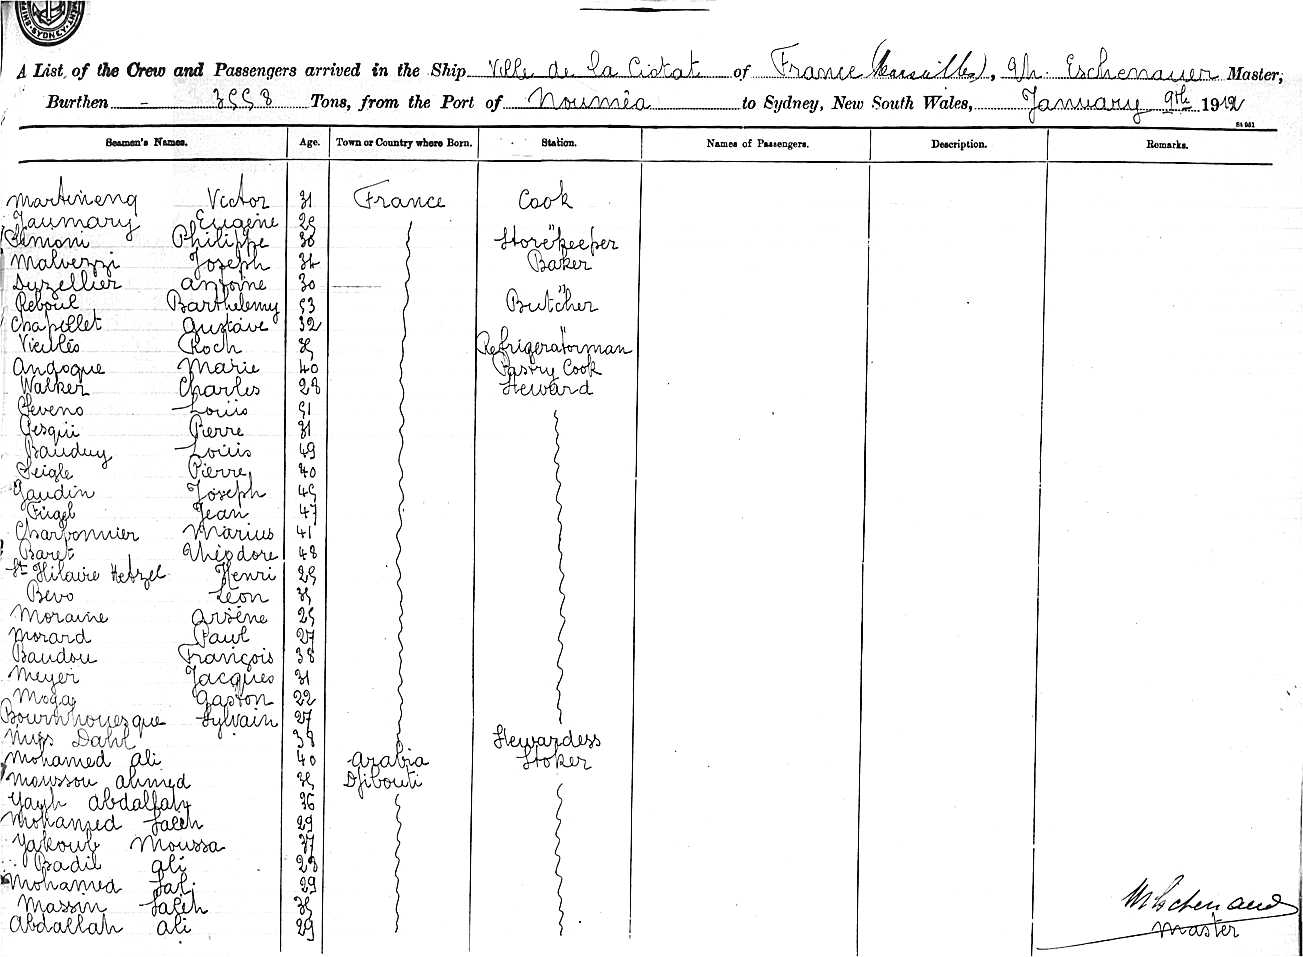 SYDNEY
A List of the Crew and Passengers arrived in the Ship Ville de La Ciotat of France (Marseilles), Eschenauer Master,
Burthen - 3558 Tons, from the Port of Nouméa to Sydney, New South Wales, January 9th 1912
Seamen's Names. Age. Town or Country where Born. Station. Names of Passengers. Description. Remarks.
Victor 31 France Cook
Eugène "
Simoni Philippe Storekeeper
Malvezzi Joseph Baker
Duzellier Antoine 30 "
Reboul Barthelemy 53 Butcher
Chapellet Gustave 32 "
Roch Refrigeratorman
Angoque Marie 40 Pastry Cook
Walker Charles 28 Steward
Seveno Louis 51
Pesqui Pierre 31
Bauduy Louis 49
Seigle Pierre 40
Gaudin Joseph 45
Jean 47
Charbonnier Marius 41
Baret Théodore 48
St Hilaire Hetzel Henri 25
Bevo Léon
Moraine Arsène 25
Morard Paul 27
Baudou François 38
Meyer Jacques 31
Gaston 22
Sylvain 27
Dahl 38 Stewardess
Mohamed Ali 40 Arabia Stoker
Moussou Ahmed Djibouti
Abdallah 36
Mohamed Saleh 29
Yakoub Moussa 37
Badil Ali 28
Mohamed 29
Massin Saleh
Abdallah Ali 29
Master